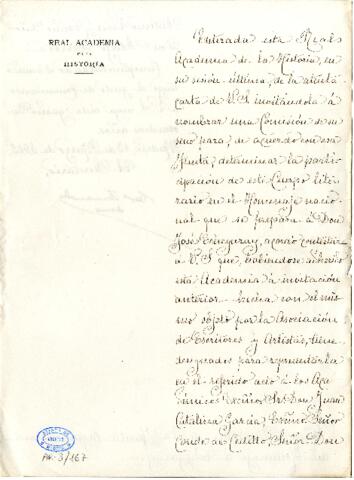 REAL ACADEMIA
DE LA
HISTORIA
Enterada esta Real
Academia de la Historia, en
su sesión última, de la atenta
carta de V.S. invitándola á
nombrar una Comisión de su
seno para, de acuerdo con esa
Junta, determinar la parti-
cipación de este Cuerpo lite-
rario en el Homenaje nacio-
nal que se prepara á Don
José Echegaray, acordó contestar
á V.S. que, habiéndose adherido
esta Academia á invitación
anterior hecha con el mis-
mo objeto por la Asociación
de Escritores y Artistas, tiene
designados para representarla
en el referido acto á los Aca-
démicos Excmos. Sres. Don Juan
Catalina García, Excmo. Señor
Conde de Cedillo, Señor Don
PA. 3/167